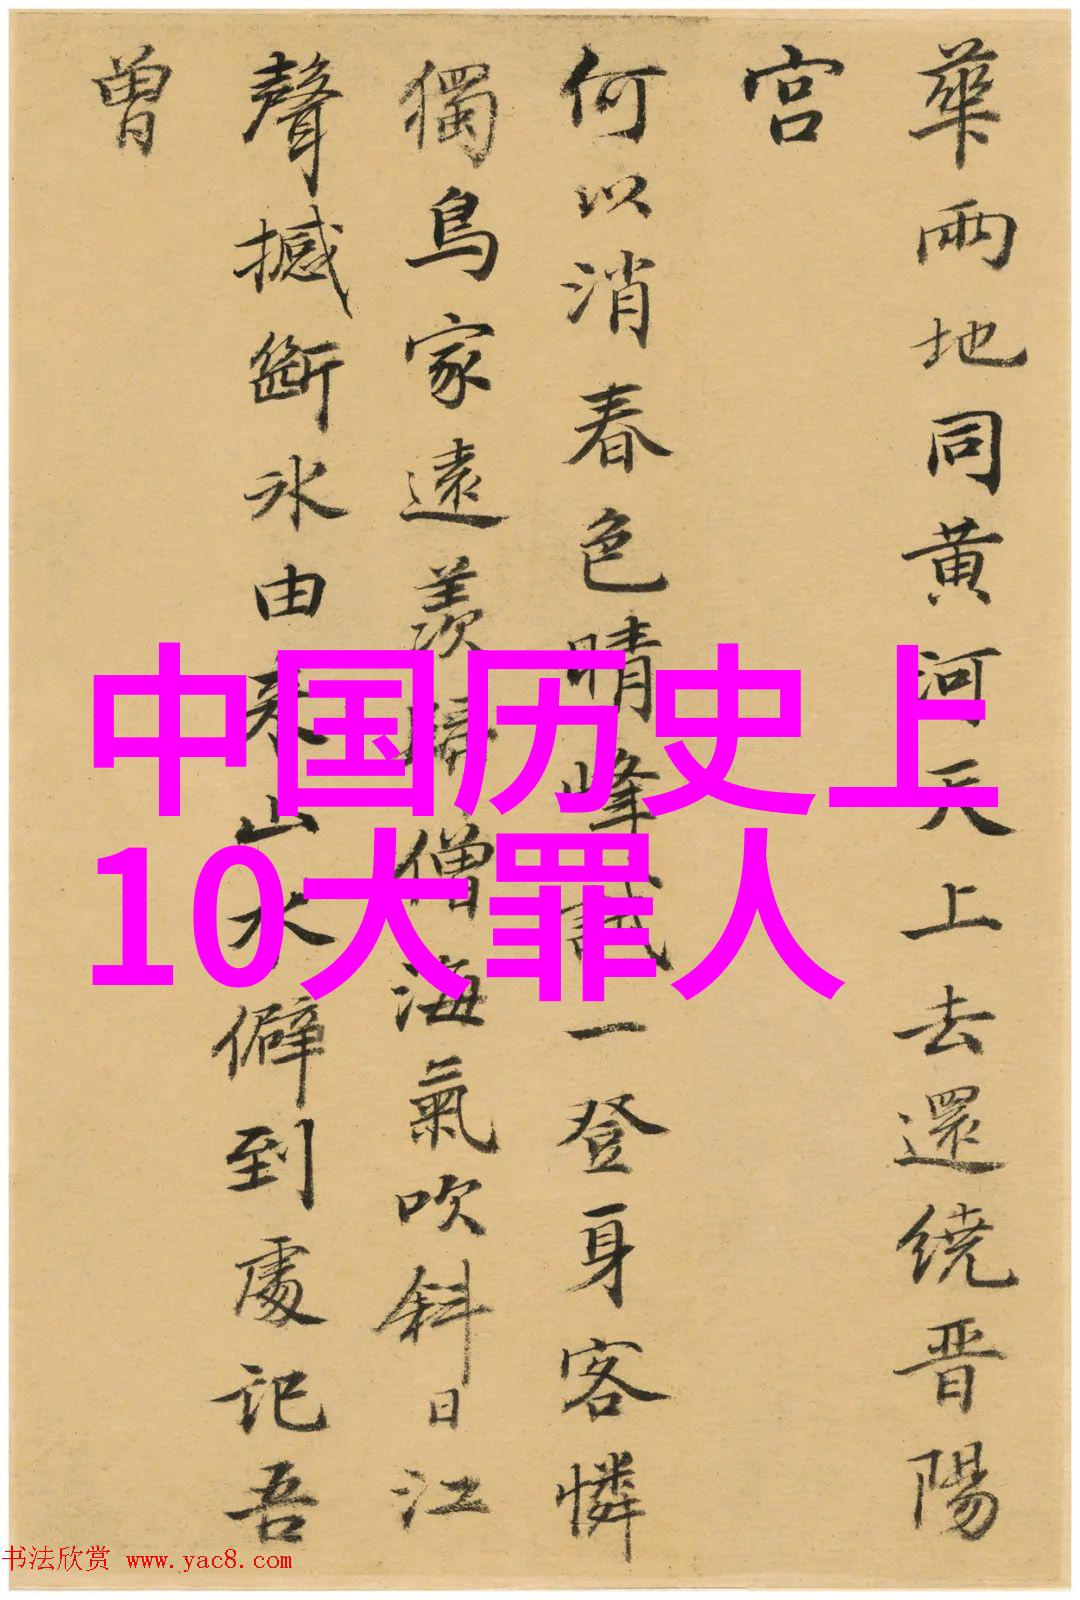 華兩地同黄河天上去還繞晋陽
宫
何以消春色晴峰試一登身客憐
獨鳥家遠羨歸僧海氣吹斜日江
聲撼斷冰由來山水僻到處記吾
曾
中国历史上
10大罪人
书法欣赏 www.yac8.com